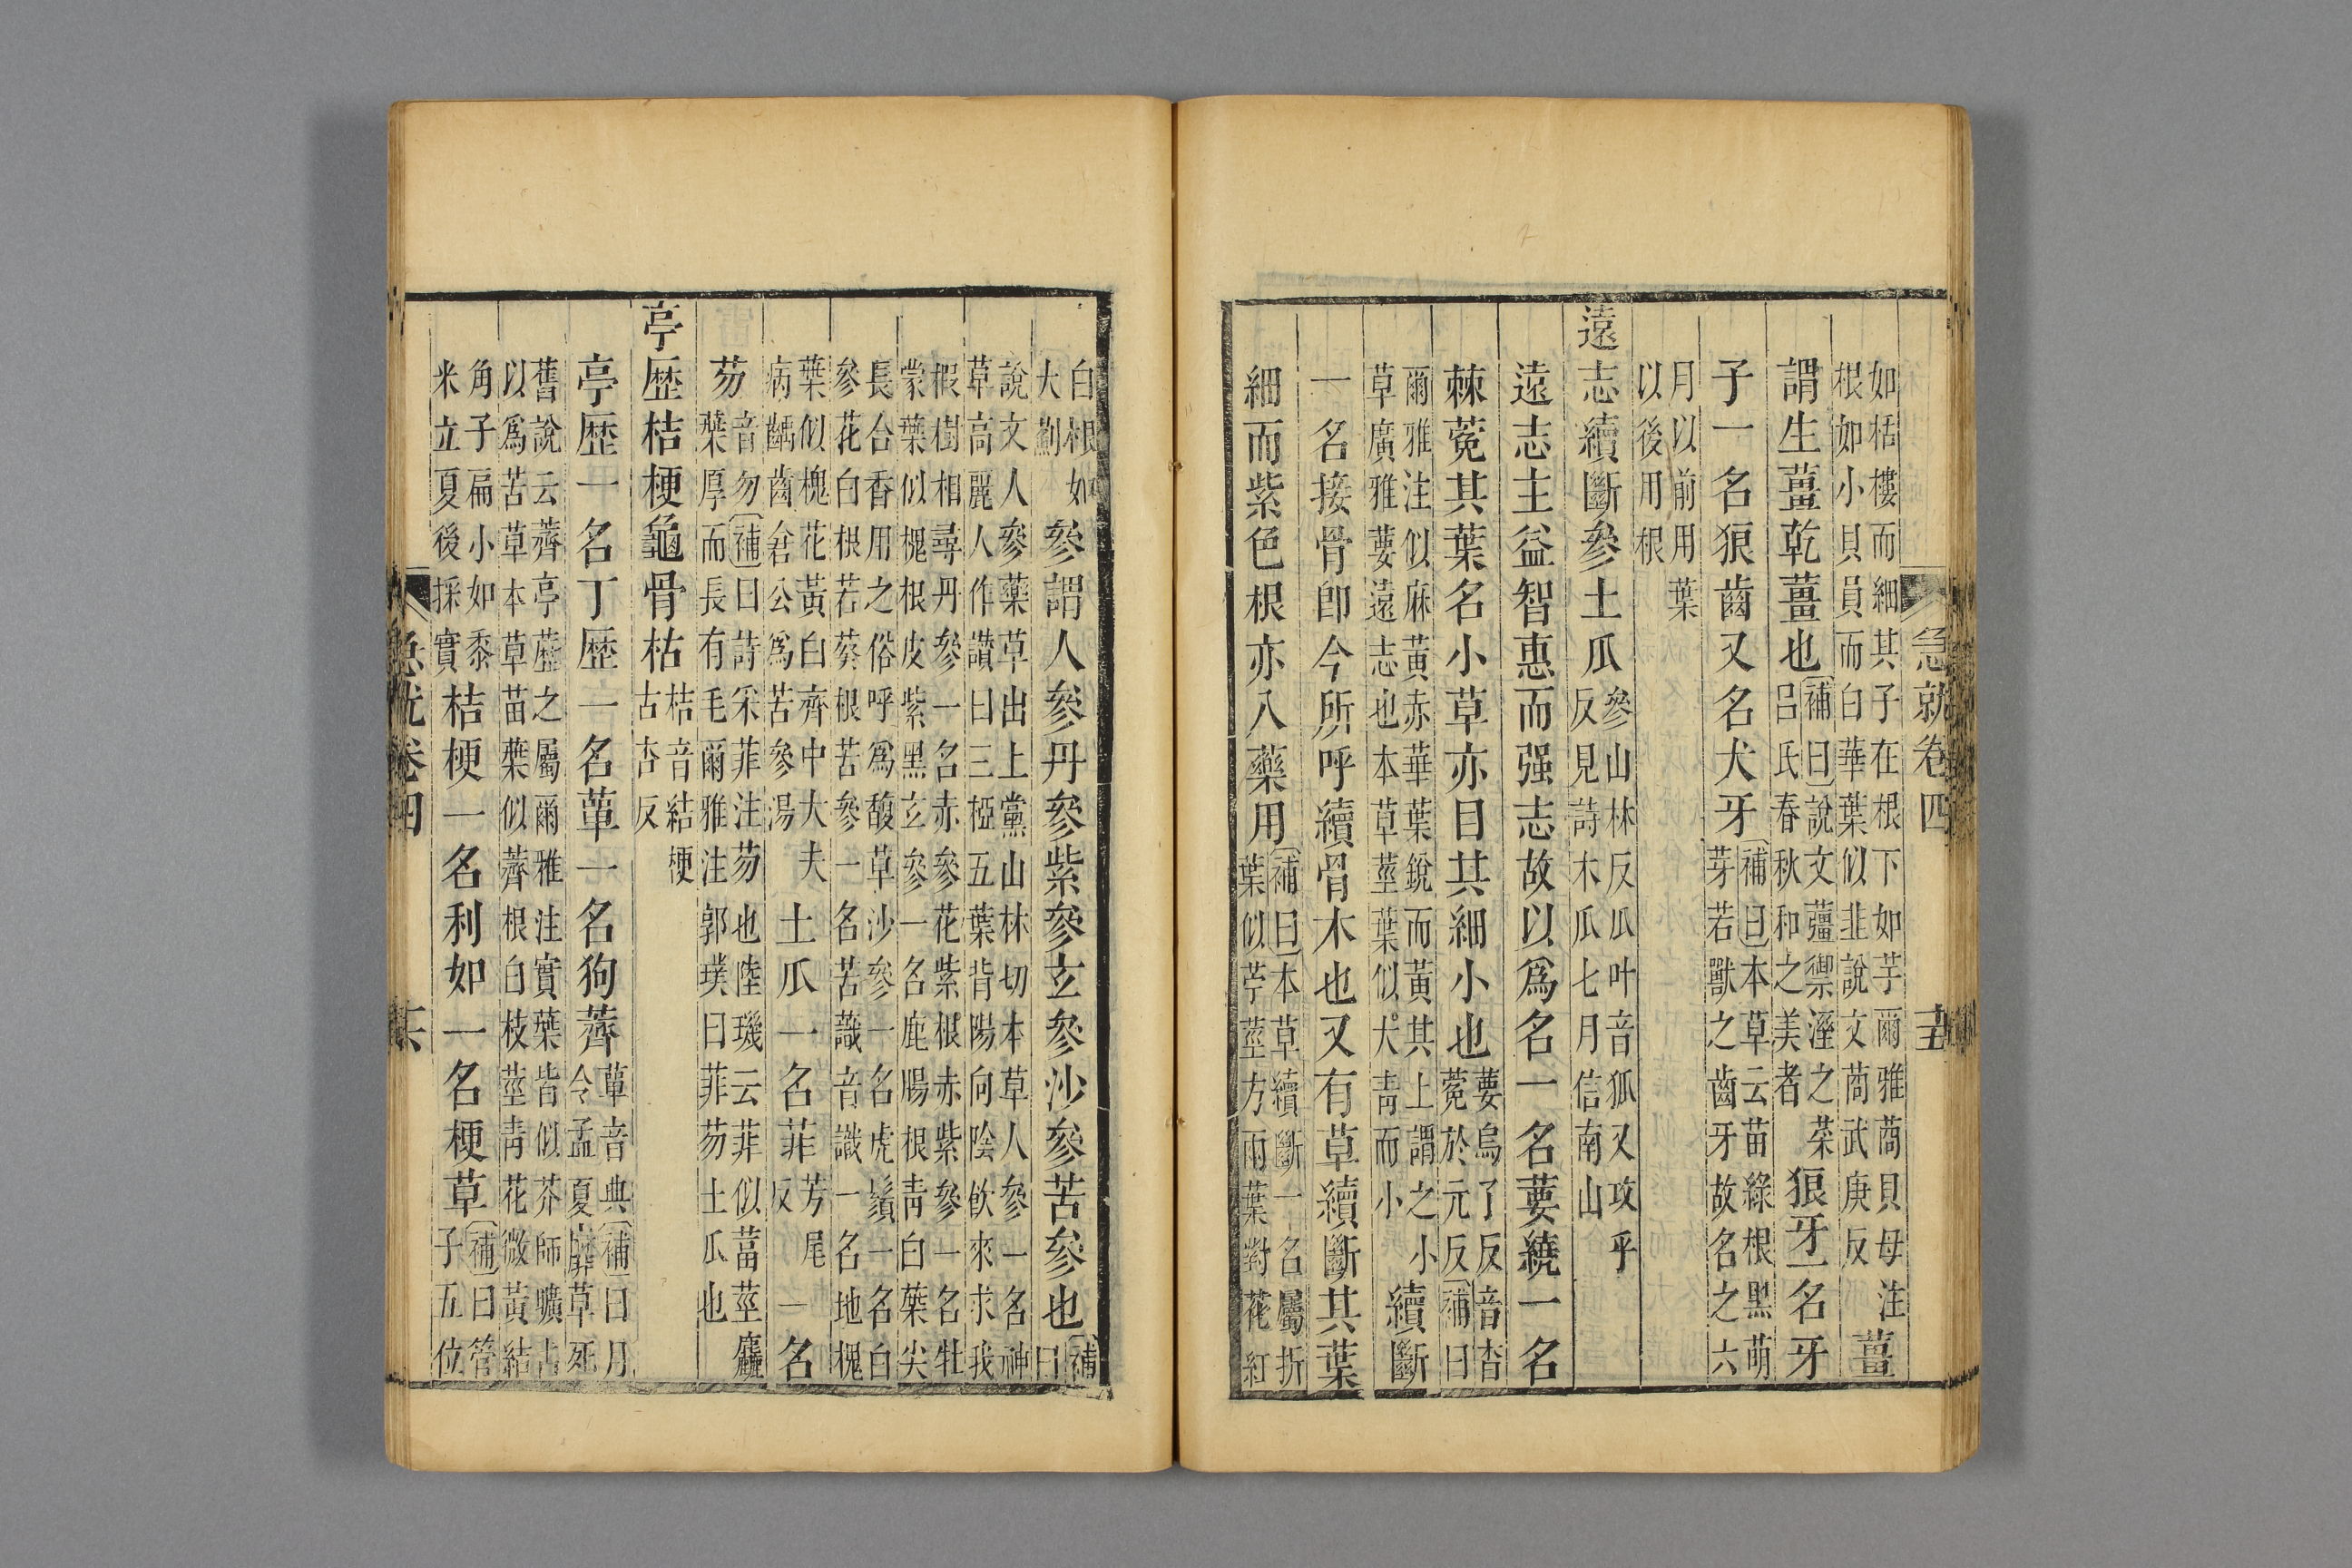 急就卷四 十五
如栝樓而細其子在根下如芋爾雅莔貝母注
根如小貝員而白華葉似韭說文莔武庚反
薑
謂生薑乾薑也
補曰說文薑禦溼之菜
呂氏春秋和之美者
狼牙一名牙
子一名狼齒又名犬牙
補曰本草云苗綠根黑萌
芽若獸之齒牙故名之六
月以前用葉
以後用根
遠志續斷參土瓜
參山林反瓜叶音狐又攻乎
反見詩木瓜七月信南山
遠志主益智惠而强志故以爲名一名葽繞一名
棘菀其葉名小草亦曰其細小也
葽烏了反音杳
菀於元反補曰
爾雅注似麻黃赤華葉銳而黃其上謂之小
草廣雅葽遠志也本草莖葉似大靑而小
續斷
一名接骨卽今所呼續骨木也又有草續斷其葉
細而紫色根亦入藥用
補曰本草續斷一名屬折
葉似苧莖方兩葉對花紅
白根如
大薊
參謂人參丹參紫參玄參沙參苦參也
補
曰
說文人參藥草出上黨山林切本草人參一名神
草高麗人作讚曰三椏五葉背陽向陰欲來求我
椵樹相尋丹參一名赤參花紫根赤紫參一名牡
蒙葉似槐根皮紫黑玄參一名鹿腸根靑白葉尖
長合香用之俗呼爲馥草沙參一名虎鬚一名白
參花白根若葵根苦參一名苦蘵音識一名地槐
葉似槐花黃白齊中大夫
病齲齒倉公爲苦參湯
土瓜一名菲
芳尾
反
一名
芴
音勿補曰詩采菲注芴也陸璣云菲似葍莖麤
葉厚而長有毛爾雅注郭璞曰菲芴土瓜也
亭歷桔梗龜骨枯
桔音結梗
古杏反
亭歷一名丁歷一名蕇一名狗薺
蕇音典補曰月
令孟夏靡草死
舊說云薺亭藶之屬爾雅注實葉皆似芥師曠占
以爲苦草本草苗葉似薺根白枝莖靑花微黃結
角子扁小如黍
米立夏後採實
桔梗一名利如一名梗草
補曰管
子五位
急就卷四 十六